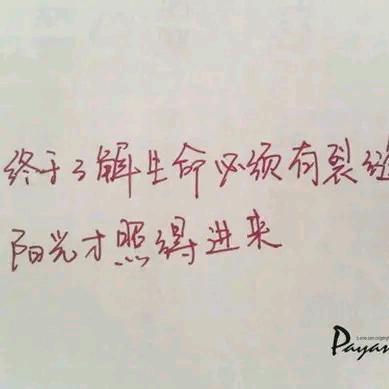 终于了解生命必须有裂缝
阳光才照得进来
Payan